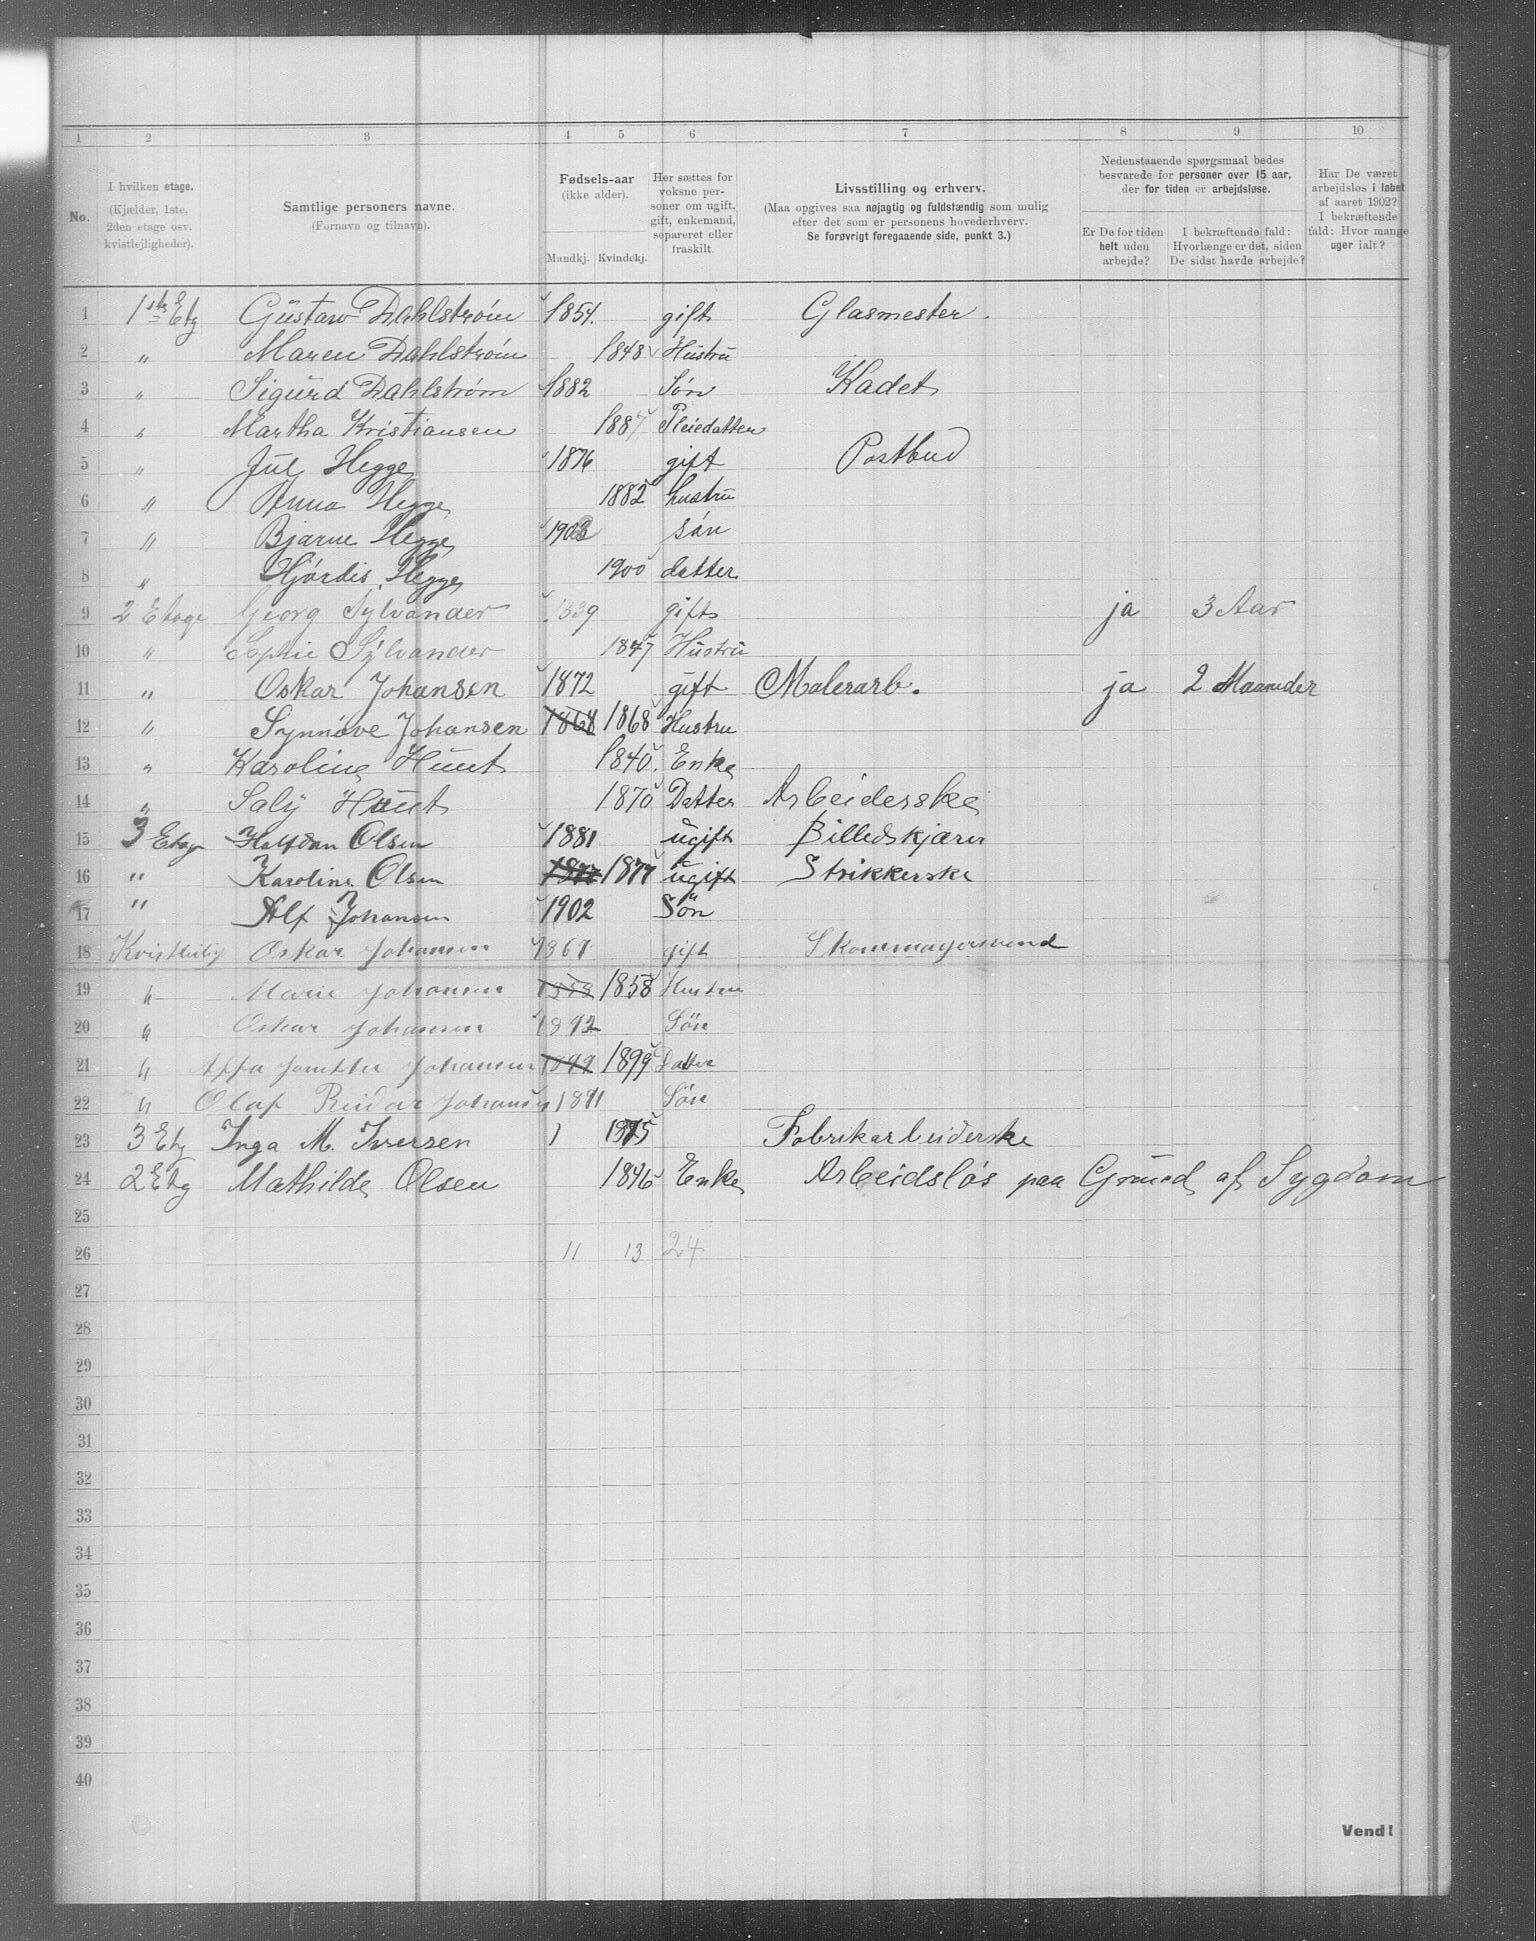 1 2 3 4 5 6 7 8 9 10
No. I hvilken etage. (Kjælder, 1ste, 2den etage osv. kvistlejligheder). Samtlige personers navne. (Fornavn og tilnavn). Fødsels-aar (ikke alder). Mandkj. Kvindekj. Her sættes for voksne personer om ugift, gift, enkemand, separeret eller fraskilt. Livsstilling og erhverv. (Maa opgives saa nøjagtig og fuldstændig som mulig efter det som er personens hovederhverv. Se forøvrigt foregaaende side, punkt 3.) Nedenstaaende spørgsmaal bedes besvarede for personer over 15 aar, der for tiden er arbejdsløse. Er De for tiden helt uden arbejde? I bekræftende fald: Hvorlænge er det, siden De sidst havde arbejde? Har De været arbejdsløs i løbet af aaret 1902? I bekræftende fald: Hvor mange uger ialt?
1 1ste Etg Gustav Dahlstrøm 1854. gift Glasmester.
2 " Maren Dahlstrøm 1848 Hustru
3 " Sigurd Dahlstrøm 1882 Søn Kadet
4 " Martha Kristiansen 1887 Pleiedatter
5 " Jul Hegge 1876 gift Postbud
6 " Anna Hegge 1882 hustru
7 " Bjarne Hegge 1903 søn
8 " Hjørdis Hegge 1900 datter
9 2 Etage Georg Sylvander 1839 gift ja 3 Aar
10 " Sophie Sylvander 1847 Hustru
11 " Oskar Johansen 1872 gift Malerarb. ja 2 Maaneder
12 " Synnøve Johansen 1868 1868 Hustru
13 " Karoline Huut 1840. Enke
14 " Saly Huut 1870 Datter Arbeiderske
15 3 Etage Halfdan Olsen 1881 ugift Billedskjærer
16 " Karoline Olsen 1877 1877 ugift Strikkerske
17 " Alf Johansen 1902 Søn
18 Kvistleilig Oskar Johansen 1867 gift Skommagersvend
19 " Marie Johansen 1858 1858 Hustru
20 " Oskar Johansen 1892 Søn
21 " Johansen 1899 1899 Datter
22 " Olaf Reidar Johansen 1891 Søn
23 3 Etg Inga M. Iversen 1 1875 Fabrikarbeiderske
24 2 Etg Mathilde Olsen 1846 Enke Arbeidsløs paa Grund af Sygdom
25
26 11 13 24
27
28
29
30
31
32
33
34
35
36
37
38
39
40
Vend!